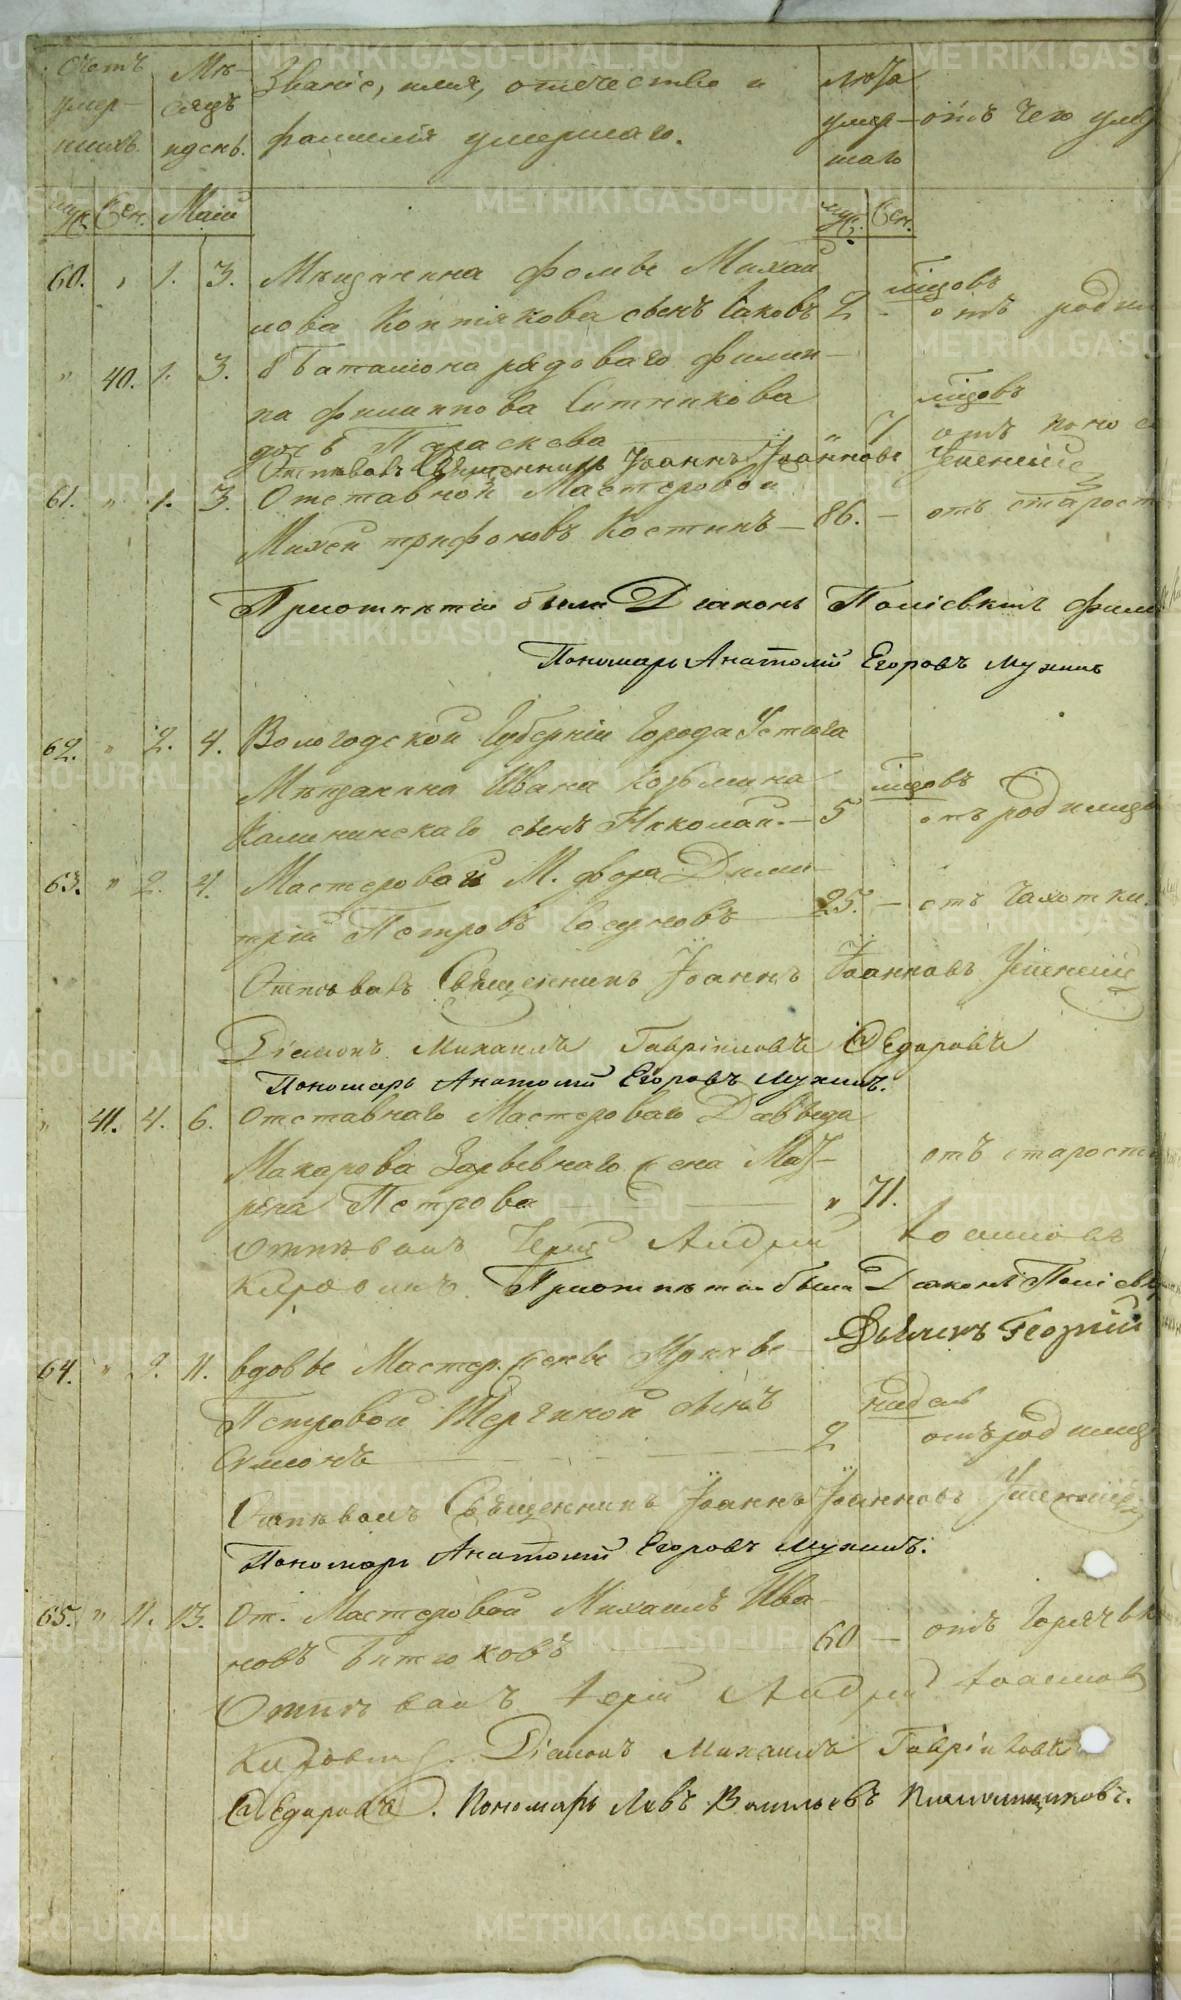 Счетъ умер- шихъ. Мѣ- сяцъ и день. Званіе, имя, отечество и фамилія умершаго. лѣта умер- шаго отъ чего умер
муж. Жен. Маій муж. Жен.
60. " 1. 3. Мѣщанина Фомы Михай
лова Коптякова сынъ Іаковъ 2 - мѣсяцовъ отъ родим
" 40. 1. 3. 8 Баталіона рядоваго Филип-
па Филиппова Ситникова
дочь Параскева " 7 мѣсяцовъ отъ поно
Отпѣвалъ Священникъ Іоаннъ Іоанновъ
61. " 1. 3. Отставной Мастеровой
Михей Трифоновъ Костинъ - 86. - отъ старост
При отпѣтіи были Діаконъ
Пономарь Анатолій Егоровъ Мухинъ
62. " 2. 4. Вологодской Губерніи Города Устюга
Мѣщанина Ивана Козьмина
Калининскаго сынъ Николай - 5 мѣсяцовъ отъ родимца
63. " 2. 4. Мастеровой М. двора Дими-
трій Петровъ 25. - отъ Чахотки.
Отпѣвалъ Священникъ Іоаннъ Іоанновъ
Діаконъ Михаилъ Гавріиловъ Ѳедоровъ
Пономарь Анатолій Егоровъ Мухинъ.
" 41. 4. 6. Отставнаго Мастероваго Давыда
Макарова жена Мат-
рена Петрова " 71. отъ старости
Отпѣвалъ Іерей Андрей Іоанновъ
При отпѣтіи были Діаконъ
Дьячекъ Георгій
64. " 9. 11. вдовы Мастер. жены Ирины
Петровой сынъ
Симонъ 2 недель отъ родимца
Отпѣвалъ Священникъ Іоаннъ Іоанновъ
Пономарь Анатолій Егоровъ Мухинъ.
65. " 11. 13. От. Мастеровой Михаилъ Ива
новъ Битюковъ 60 - отъ Горячки
Отпѣвалъ Іерей Андрей Іоанновъ
Діаконъ Михаилъ Гавріиловъ
Ѳедоровъ. Пономарь Левъ Васильевъ
METRIKI.GASO-URAL.RU